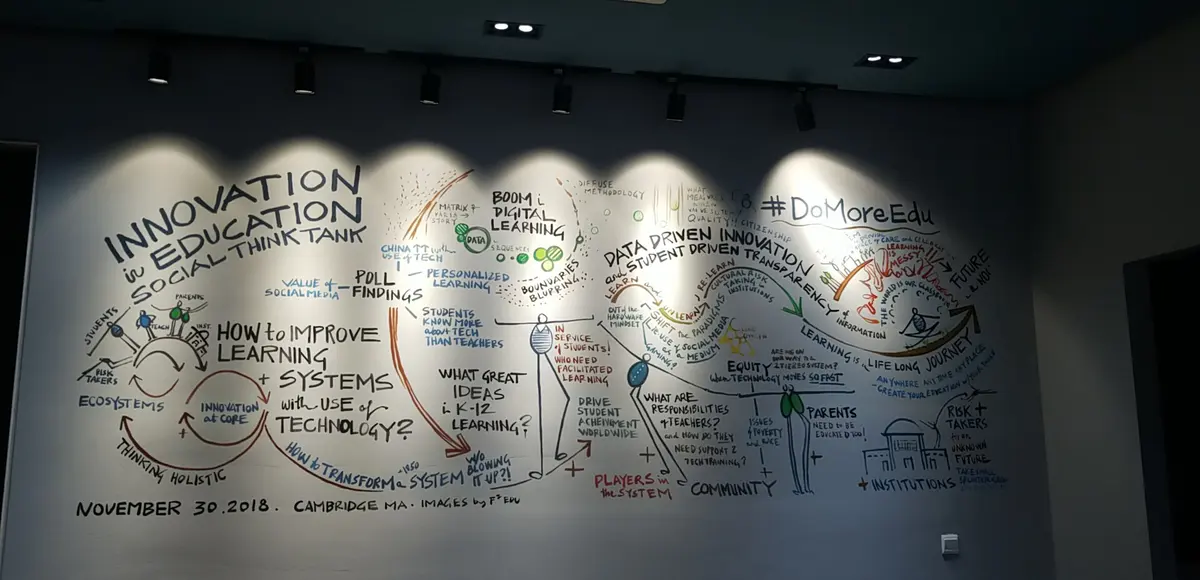 INNOVATION
in EDUCATION
SOCIAL THINK TANK
STUDENTS
TEACH
PARENTS
RISK
TAKERS
ECOSYSTEMS
INNOVATION
at CORE
THINKING HOLISTIC
HOW to IMPROVE
LEARNING
SYSTEMS
with USE of
TECHNOLOGY?
VALUE of
SOCIAL MEDIA
POLL
FINDINGS
CHINA
USE of TECH
PERSONALIZED
LEARNING
STUDENTS
KNOW MORE
about TECH
THAN TEACHERS
MATRIX
DATA
BOOM i
DIGITAL
LEARNING
BOUNDARIES
BLURRING
DIFFUSE
METHODOLOGY
WHAT GREAT
IDEAS
i K-12
LEARNING?
HOW to TRANSFORM a SYSTEM
W/O
BLOWING
IT UP?!
IN
SERVICE
of STUDENTS!
WHO NEED
FACILITATED
LEARNING
DRIVE
STUDENT
ACHIEVMENT
WORLDWIDE
PLAYERS in
the SYSTEM
DATA DRIVEN INNOVATION
and STUDENT DRIVEN TRANSPARENCY
of INFORMATION
LEARN
RE-LEARN
CULTURAL RISK
TAKING in
INSTITUTIONS
OUT of the
HARDWARE
MINDSET
SHIFT the PARADIGMS
SOCIAL MEDIA
as a
MEDIUM
GAMING?
QUALITY
CITIZENSHIP
EQUITY
when TECHNOLOGY MOVES SO FAST
WHAT ARE
RESPONSIBILITIES
of TEACHERS?
and HOW do THEY
NEED SUPPORT &
TECH TRAINING?
COMMUNITY
ISSUES
of POVERTY
and RACE
PARENTS
NEED to be
EDUCATED too!
#DoMoreEdu
LEARNING is
MESSY
THE WORLD is OUR
FUTURE
LEARNING is LIFE LONG JOURNEY
ANYWHERE ANY TIME ANY PLACE
CREATE YOUR EDUCATION
RISK +
TAKERS
UNKNOWN
FUTURE
+ INSTITUTIONS
NOVEMBER 30.2018. CAMBRIDGE MA. IMAGES by